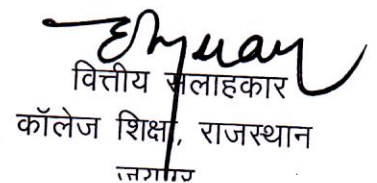 वित्तीय सलाहकार
कॉलेज शिक्षा, राजस्थान
जयपुर